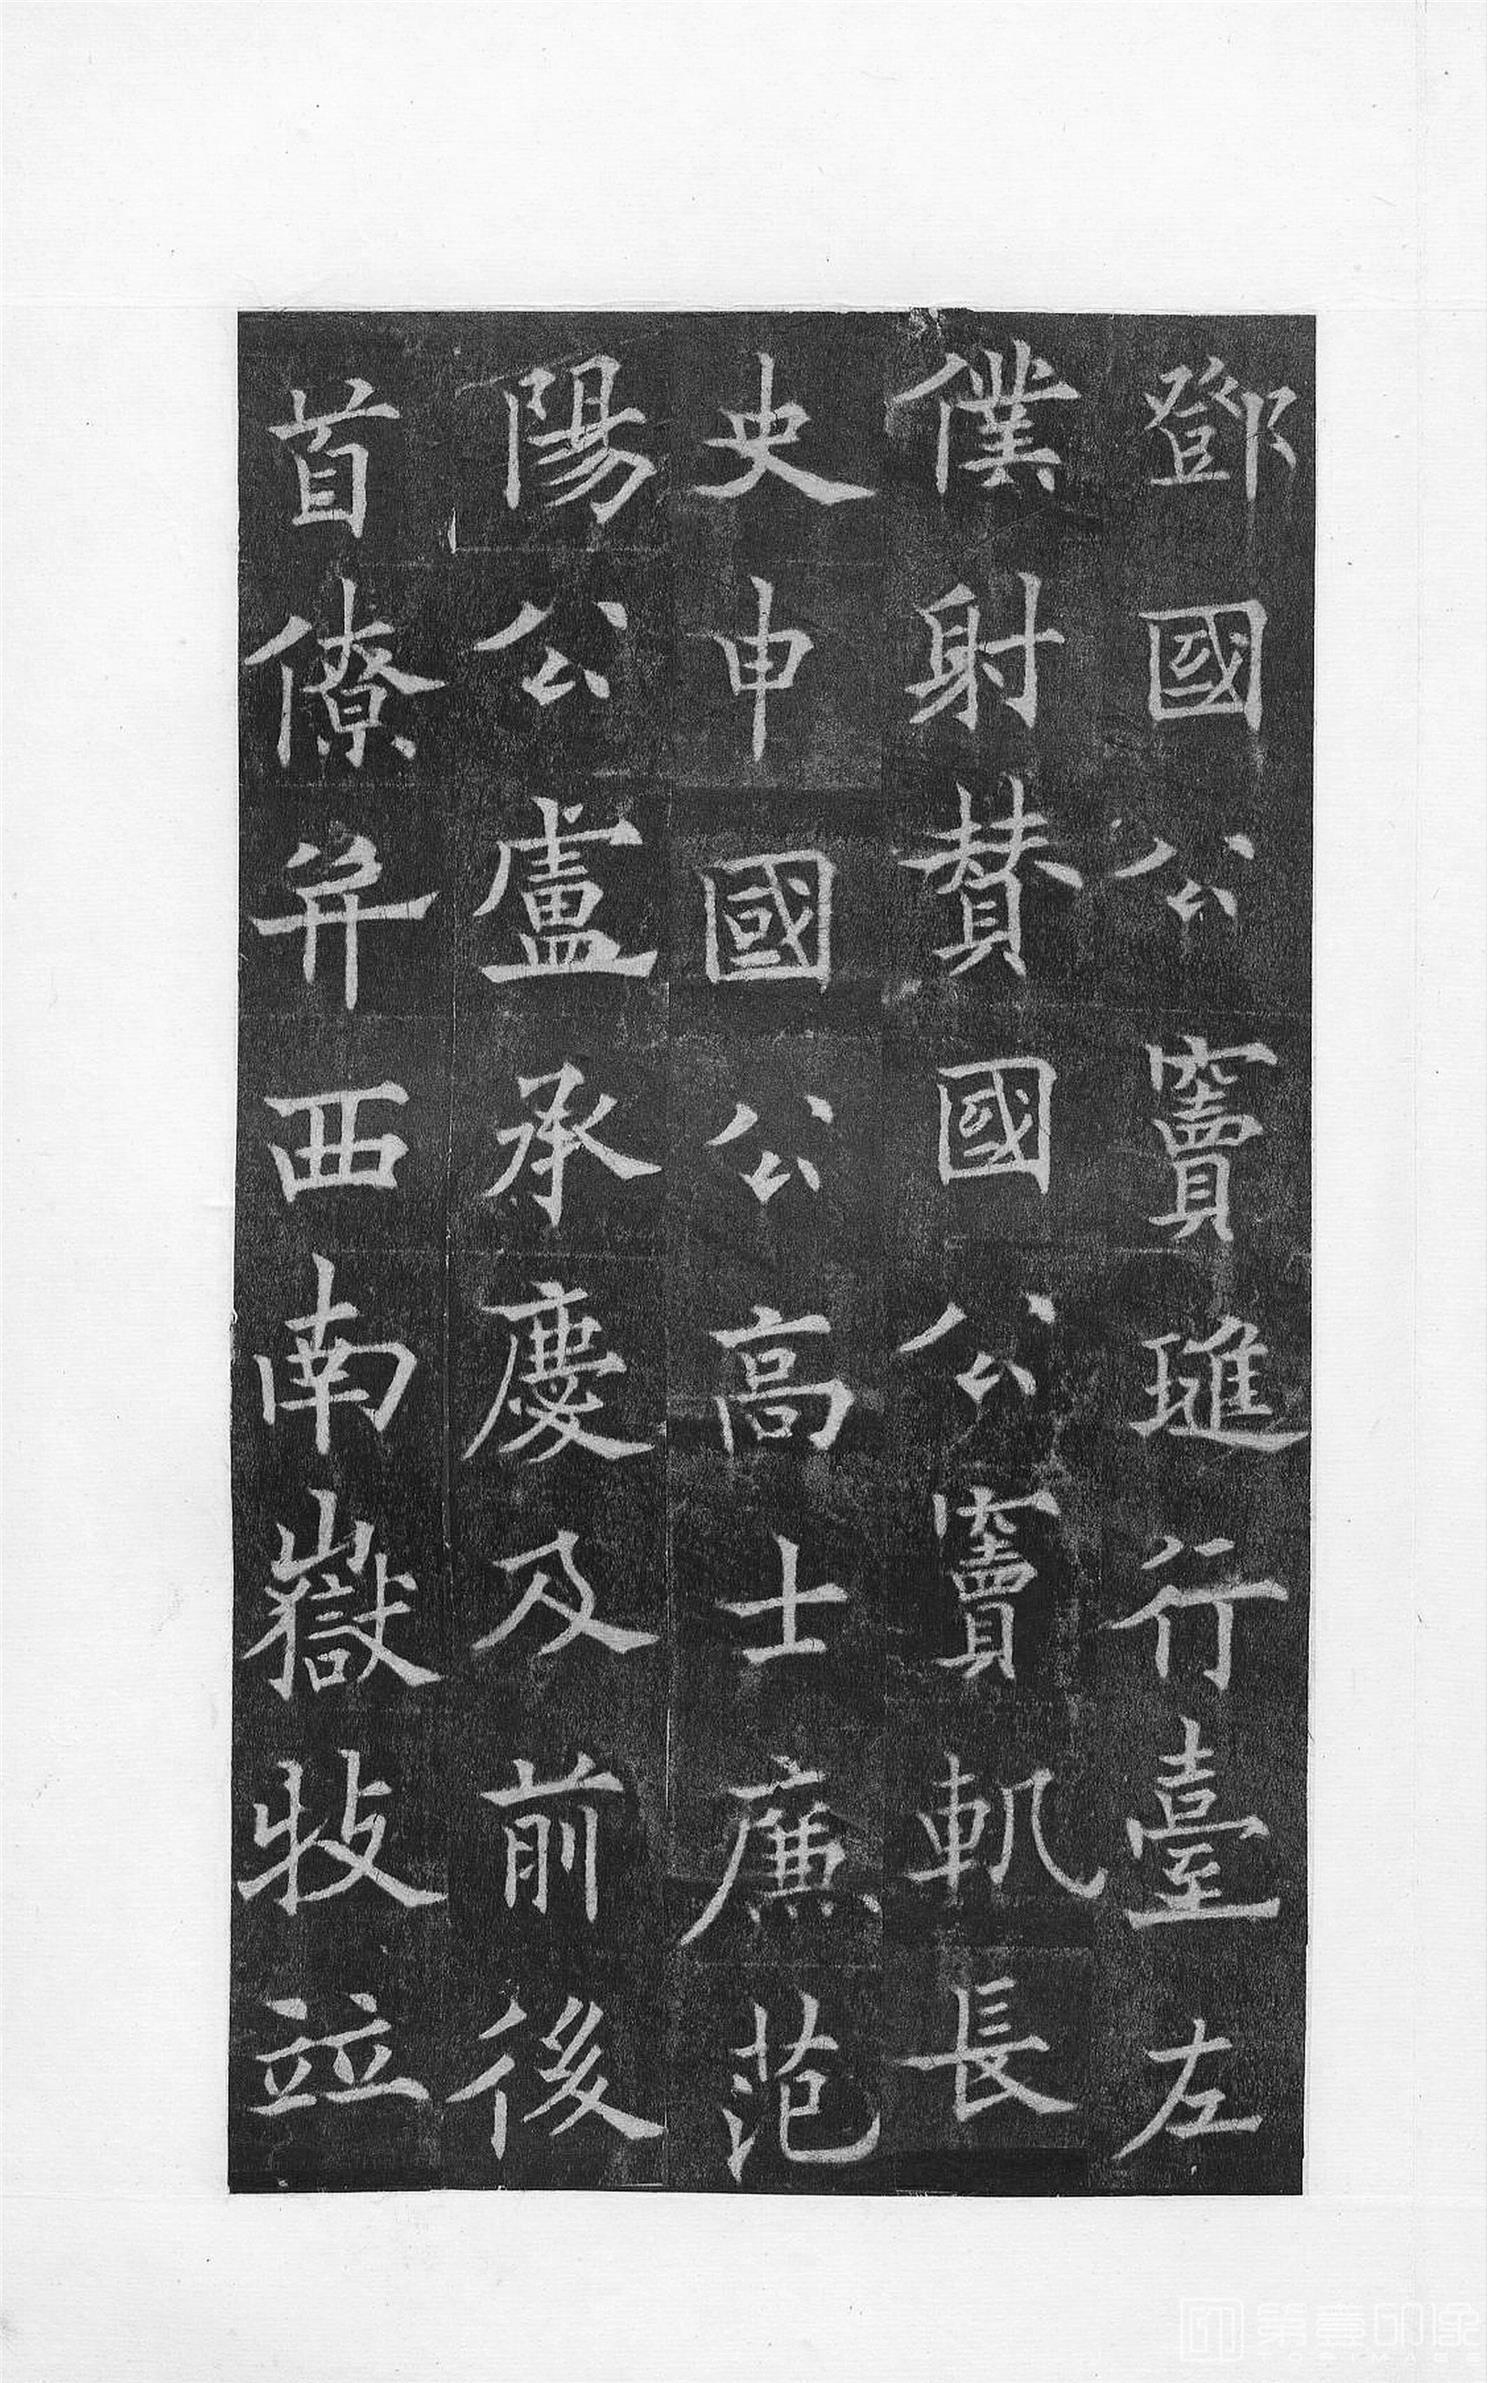 鄧國公竇璡行臺左
僕射賛國公竇軌長
史申國公高士廉范
陽公盧承慶及前後
首僚并西南嶽牧並
第壹印像
TOPIMAGE